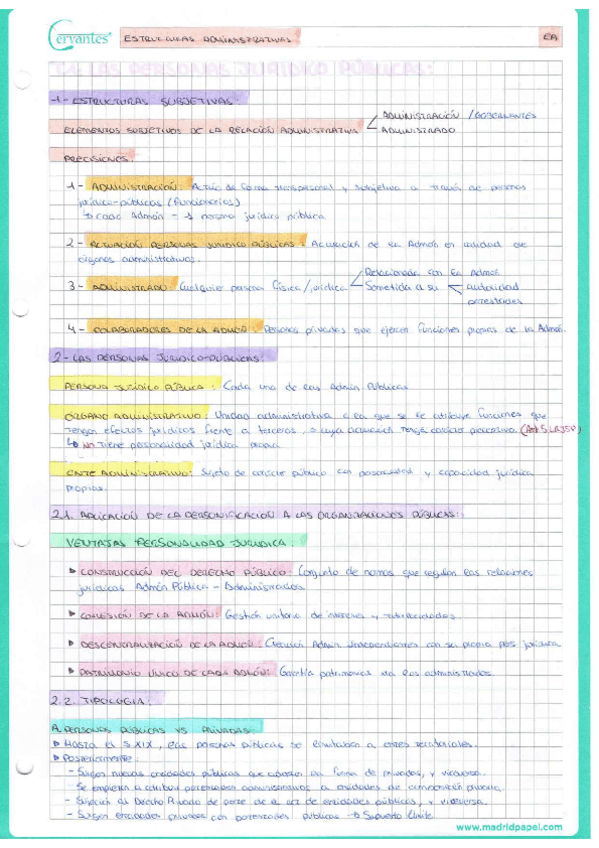 Cervantes ESTRUCTURAS ADMINISTRATIVAS EA
T.1. LAS PERSONAS JURÍDICO PÚBLICAS:
-1- ESTRUCTURAS SUBJETIVAS
ELEMENTOS SUBJETIVOS DE LA RELACIÓN ADMINISTRATIVA
ADMINISTRACIÓN / GOBERNANTES
ADMINISTRADO
PRECISIONES:
1 - ADMINISTRACIÓN: Actúa de forma y subjetiva a través de personas
jurídico-públicas (Funcionarios)
↳ cada Admón → persona jurídico pública
2 - ACTUACIÓN PERSONAS JURÍDICO PÚBLICAS: Actuación de la Admón en calidad de
órganos administrativos.
3 - ADMINISTRADO: Cualquier persona física/jurídica
Relacionada con la Admón
Sometida a su
autoridad
potestades
4 - COLABORADORES DE LA ADMÓN: Personas privadas que ejercen funciones propias de la Admón.
2 - LAS PERSONAS JURÍDICO-PÚBLICAS:
PERSONA JURÍDICO PÚBLICA: Cada una de las Admin Públicas
ÓRGANO ADMINISTRATIVO: Unidad administrativa a la que se le atribuye funciones que
tengan efectos jurídicos frente a terceros, o cuya actuación tenga carácter preceptivo. (Art 5 LRJSP)
↳ NO Tiene personalidad jurídica propia
ENTE ADMINISTRATIVO: Sujeto de carácter público con personalidad y capacidad jurídica
propias.
2.1. APLICACIÓN DE LA PERSONIFICACIÓN A LAS ORGANIZACIONES PÚBLICAS:
VENTAJAS PERSONALIDAD JURÍDICA:
▶ CONSTRUCCIÓN DEL DERECHO PÚBLICO: Conjunto de normas que regulan las relaciones
jurídicas Admón Pública - Administrados
▶ COHESIÓN DE LA ADMÓN: Gestión unitaria de intereses y
▶ DESCENTRALIZACIÓN DE LA ADMÓN: Creación Admin independientes con su propia pers jurídica
▶ PATRIMONIO ÚNICO DE CADA ADMÓN: Garantía patrimonial los administrados.
2.2. TIPOLOGÍA:
A. PERSONAS PÚBLICAS VS PRIVADAS:
▶ Hasta el S.XIX, las personas públicas se limitaban a entes territoriales.
▶ Posteriormente:
- Surgen nuevas entidades públicas que adoptan la forma de privadas, y viceversa.
- Se empiezan a atribuir potestades administrativas a entidades de composición privada.
- Sujeción al Derecho Privado de parte de la act de entidades públicas, y viceversa.
- Surgen entidades privadas con potestades públicas → Supuesto límite
www.madridpapel.com